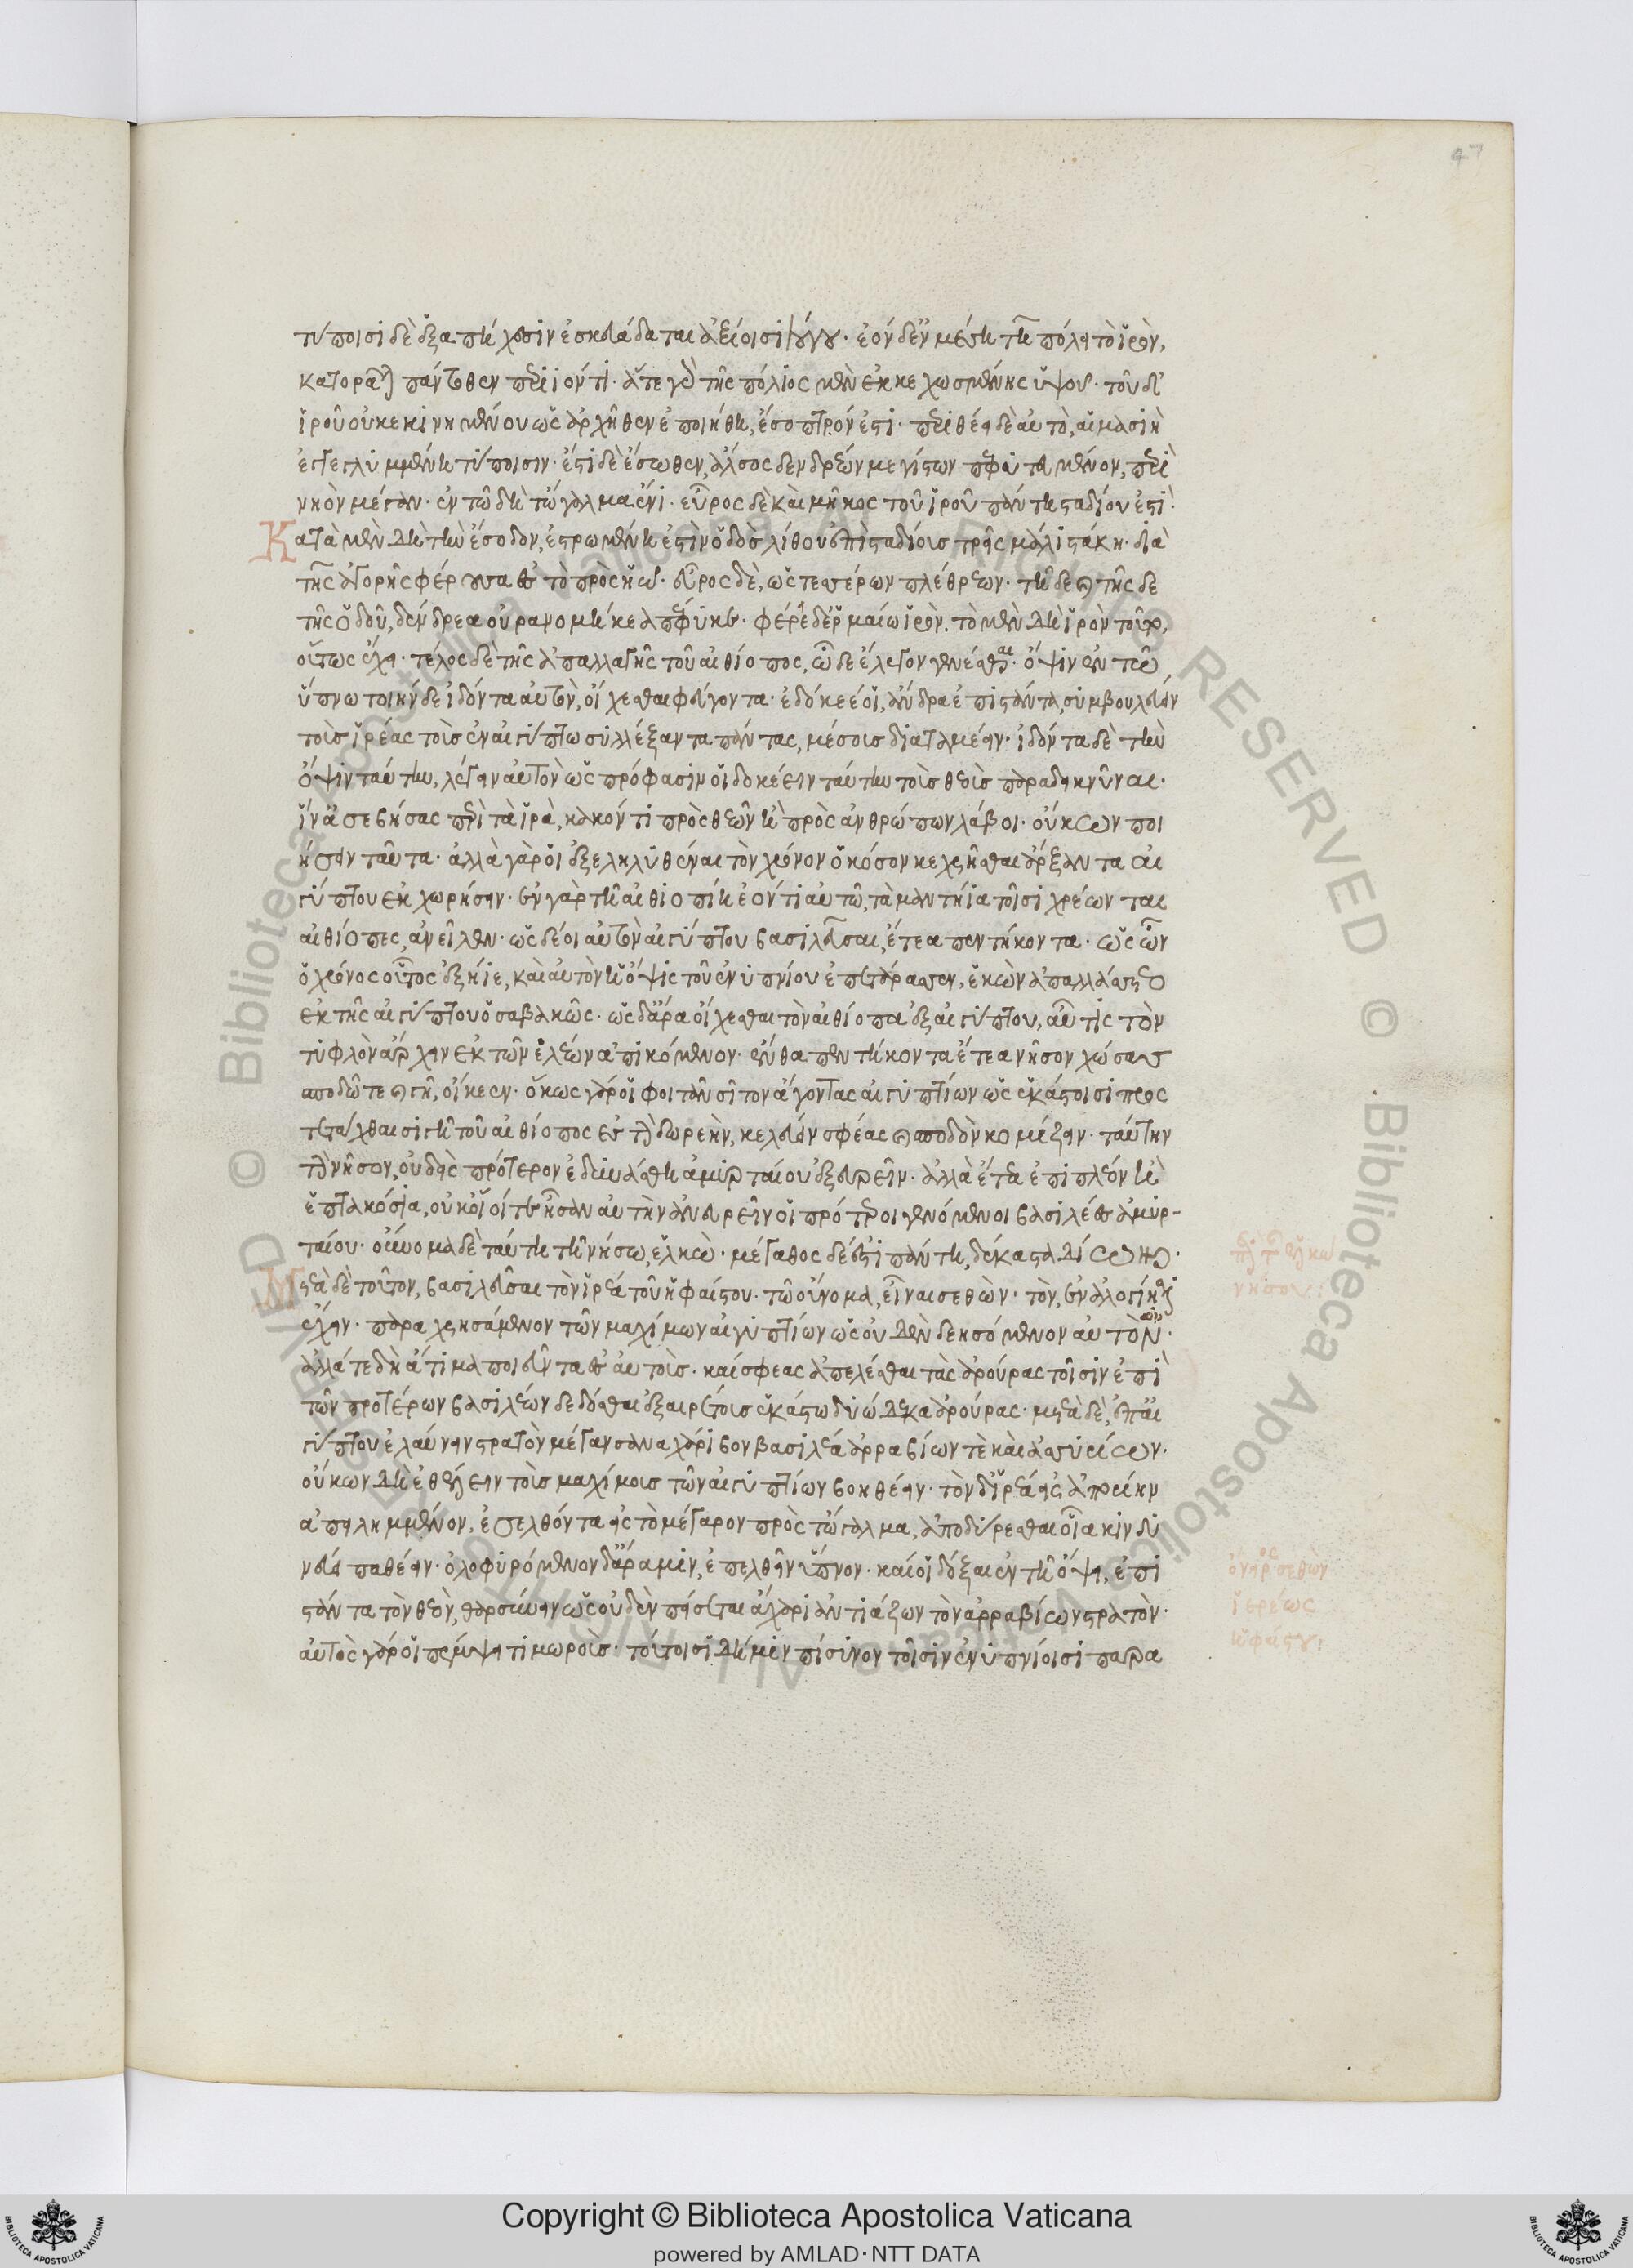 47
τύποισι δὲ ἑξαπήχεσιν ἐσκευάδαται ἀξίοισι λόγου· ἐὸν δ' ἐν μέσῃ τῇ πόλει τὸ ἱρὸν,
κατορᾶται πάντοθεν περιϊόντι· ἅτε γὰρ τῆς πόλιος μὲν ἐκκεχωσμένης ὑψοῦ· τοῦ δ'
ἱροῦ οὐ κεκινημένου ὡς ἀρχῆθεν ἐποιήθη, ἔσοπτρόν ἐστι· περιθέει δὲ αὐτὸ, αἱμασιὴ
ἐγγεγλυμμένη τύποισιν· ἔστι δὲ ἔσωθεν, ἄλσος δενδρέων μεγίστων πεφυτευμένον, περὶ
νηὸν μέγαν· ἐν τῷ δὴ τὤγαλμα ἔνι· εὖρος δὲ καὶ μῆκος τοῦ ἱροῦ πάντη σταδίου ἐστί·
Κατὰ μὲν δὴ τὴν ἔσοδον, ἐστρωμένη ἐστὶν ὁδὸς λίθου ἐπὶ σταδίους τρεῖς μάλιστά κη· διὰ
τῆς ἀγορῆς φέρουσα ἐς τὸ πρὸς ἠῶ· εὖρος δὲ, ὡς τεσσέρων πλέθρων· τῇ δὲ καὶ τῇ δε
τῆς ὁδοῦ, δένδρεα οὐρανομήκεα πέφυκε· φέρει δ' ἐς Ἑρμαίω ἱρόν. τὸ μὲν δὴ ἱρὸν τοῦτο,
οὕτως ἔχει· τέλος δὲ τῆς ἀπαλλαγῆς τοῦ αἰθίοπος, ὧδε ἔλεγον γενέσθαι· ὄψιν ἐν τῷ
ὕπνω τοιήνδε ἰδόντα αὐτὸν, οἴχεσθαι φεύγοντα· ἐδόκεέ οἱ, ἄνδρα ἐπιστάντα, συμβουλεύειν
τοὺς ἱρέας τοὺς ἐν αἰγύπτω συλλέξαντα πάντας, μέσους διαταμέειν· ἰδόντα δὲ τὴν
ὄψιν ταύτην, λέγειν αὐτὸν ὡς πρόφασίν οἱ δοκέειν ταύτην τοὺς θεοὺς παραδεικνῦναι·
ἵνα ἀσεβήσας περὶ τὰ ἱρὰ, κακόν τι πρὸς θεῶν ἢ πρὸς ἀνθρώπων λάβοι· οὐκ ὦν ποι
ήσειν ταῦτα· ἀλλὰ γάρ οἱ ἐξεληλυθέναι τὸν χρόνον ὁκόσον κεχρῆσθαι ἄρξαντα αἰ
γύπτου ἐκχωρήσειν· ἐν γὰρ τῇ αἰθιοπίη ἐόντι αὐτῷ, τὰ μαντήϊα τοῖσι χρέωνται
αἰθίοπες, ἀνεῖλεν· ὡς δέοι αὐτὸν αἰγύπτου βασιλεῦσαι, ἔτεα πεντήκοντα· ὡς ὦν
ὁ χρόνος οὗτος ἐξήϊε, καὶ αὐτὸν ἡ ὄψις τοῦ ἐνυπνίου ἐπετάρασσεν, ἑκὼν ἀπαλλάσσετο
ἐκ τῆς αἰγύπτου ὁ σαβακῶς· ὡς δ' ἄρα οἴχεσθαι τὸν αἰθίοπα ἐξ αἰγύπτου, αὖτις τὸν
τυφλὸν ἄρχειν ἐκ τῶν ἑλέων ἀπικόμενον· ἔνθα πεντήκοντα ἔτεα νῆσον χώσας
σποδῷ τε καὶ γῇ, οἴκεεν· ὅκως γάρ οἱ φοιτᾶν σῖτον ἄγοντας αἰγυπτίων ὡς ἑκάστοισι προς
τετάχθαι σιγῇ τοῦ αἰθίοπος ἐς τὴν δωρεὴν, κελεύειν σφέας καὶ σποδὸν κομίζειν· ταύτην
τὴν νῆσον, οὐδεὶς πρότερον ἐδυνάσθη ἀμυρταίου ἐξευρεῖν· ἀλλὰ ἔτεα ἐπὶ πλέον ἢ
ἑπτακόσια, οὐκ οἷοί τε ἦσαν αὐτὴν ἀνευρεῖν οἱ πρότεροι γενόμενοι βασιλέες ἀμυρ-
ταίου· οὔνομα δὲ ταύτη τῇ νήσω, ἑλκώ· μέγαθος δέ ἐστι πάντη, δέκα σταδίων·
Μετὰ δὲ τοῦτον, βασιλεῦσαι τὸν ἱρέα τοῦ ἡφαίστου· τῷ οὔνομα, εἶναι σεθὼν· τὸν, ἐν ἀλογίησι
ἔχειν· παραχρησάμενον τῶν μαχίμων αἰγυπτίων ὡς οὐδὲν δεησόμενον αὐτῶν·
ἄλλά τε δὴ ἄτιμα ποιεῦντα ἐς αὐτοὺς· καί σφεας ἀπελέσθαι τὰς ἀρούρας τοῖσιν ἐπὶ
τῶν προτέρων βασιλέων δεδόσθαι ἐξαιρέτους ἑκάστω δυώδεκα ἀρούρας· μετὰ δὲ, ἐπ' αἴ
γυπτου ἐλαύνειν στρατὸν μέγαν σαναχάριβον βασιλέα ἀρραβίων τὲ καὶ ἀσσυρίων·
οὔκων δὴ ἐθέλειν τοὺς μαχίμους τῶν αἰγυπτίων βοηθέειν· τὸν δ' ἱρέα ἐς ἀπορίην
ἀπειλημμένον, ἐσελθόντα ἐς τὸ μέγαρον πρὸς τὤγαλμα, ἀποδύρεσθαι οἷα κινδυ
νεύει παθέειν· ὀλοφυρόμενον δ' ἄρα μιν, ἐπελθεῖν ὕπνον· καί οἱ δόξαι ἐν τῇ ὄψει, ἐπι
στάντα τὸν θεὸν, θαρσύνειν ὡς οὐδὲν πείσεται ἄχαρι ἀντιάζων τὸν ἀρραβίων στρατὸν·
αὐτὸς γάρ οἱ πέμψει τιμωροὺς· τούτοισι δή μιν πίσυνον τοῖσιν ἐνυπνίοισι παρα
νήσου:
ὄνειρος σεθὼν
ἱερέως
ἡφαίστου:
Copyright © Biblioteca Apostolica Vaticana
powered by AMLAD·NTT DATA